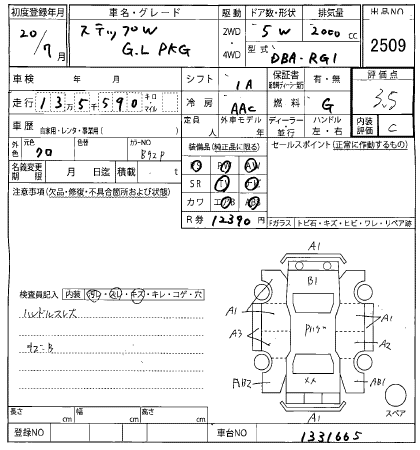 初度登録年月 車名・グレード 駆動 ドア数・形状 排気量 出品NO
20/7月 ステップワゴン 2WD 5W 2000cc 2509
G.L PKG 4WD 型式 DBA-RG1
車検 年 月 シフト IA 保証書 有・無 評価点
走行 13万5千590 キロ・マイル 冷房 AAC 燃料 G 3.5
車歴 自家用・レンタ・事業用( ) 定員 人 外車モデル 年 ディーラー 並行 ハンドル 左・右 内装評価 C
外色 元色 クロ 色替 カラーNO B92P 装備品(純正品に限る) セールスポイント(正常に作動するもの)
名義変更期限 月 日迄 積載 t PS PW AW
注意事項(欠品・修復・不具合箇所および状態) SR TV
カワ エアB
R券 12390円 Fガラス トビ石・キズ・ヒビ・ワレ・リペア跡
A1
B1
検査員記入 内装 キズ・キレ・コゲ・穴 A1 A1
ハンドルスレ A3 A2
サビ-B
AB1
A1 スペア
長さ cm 幅 cm 高さ cm
登録NO 車台NO 1331665